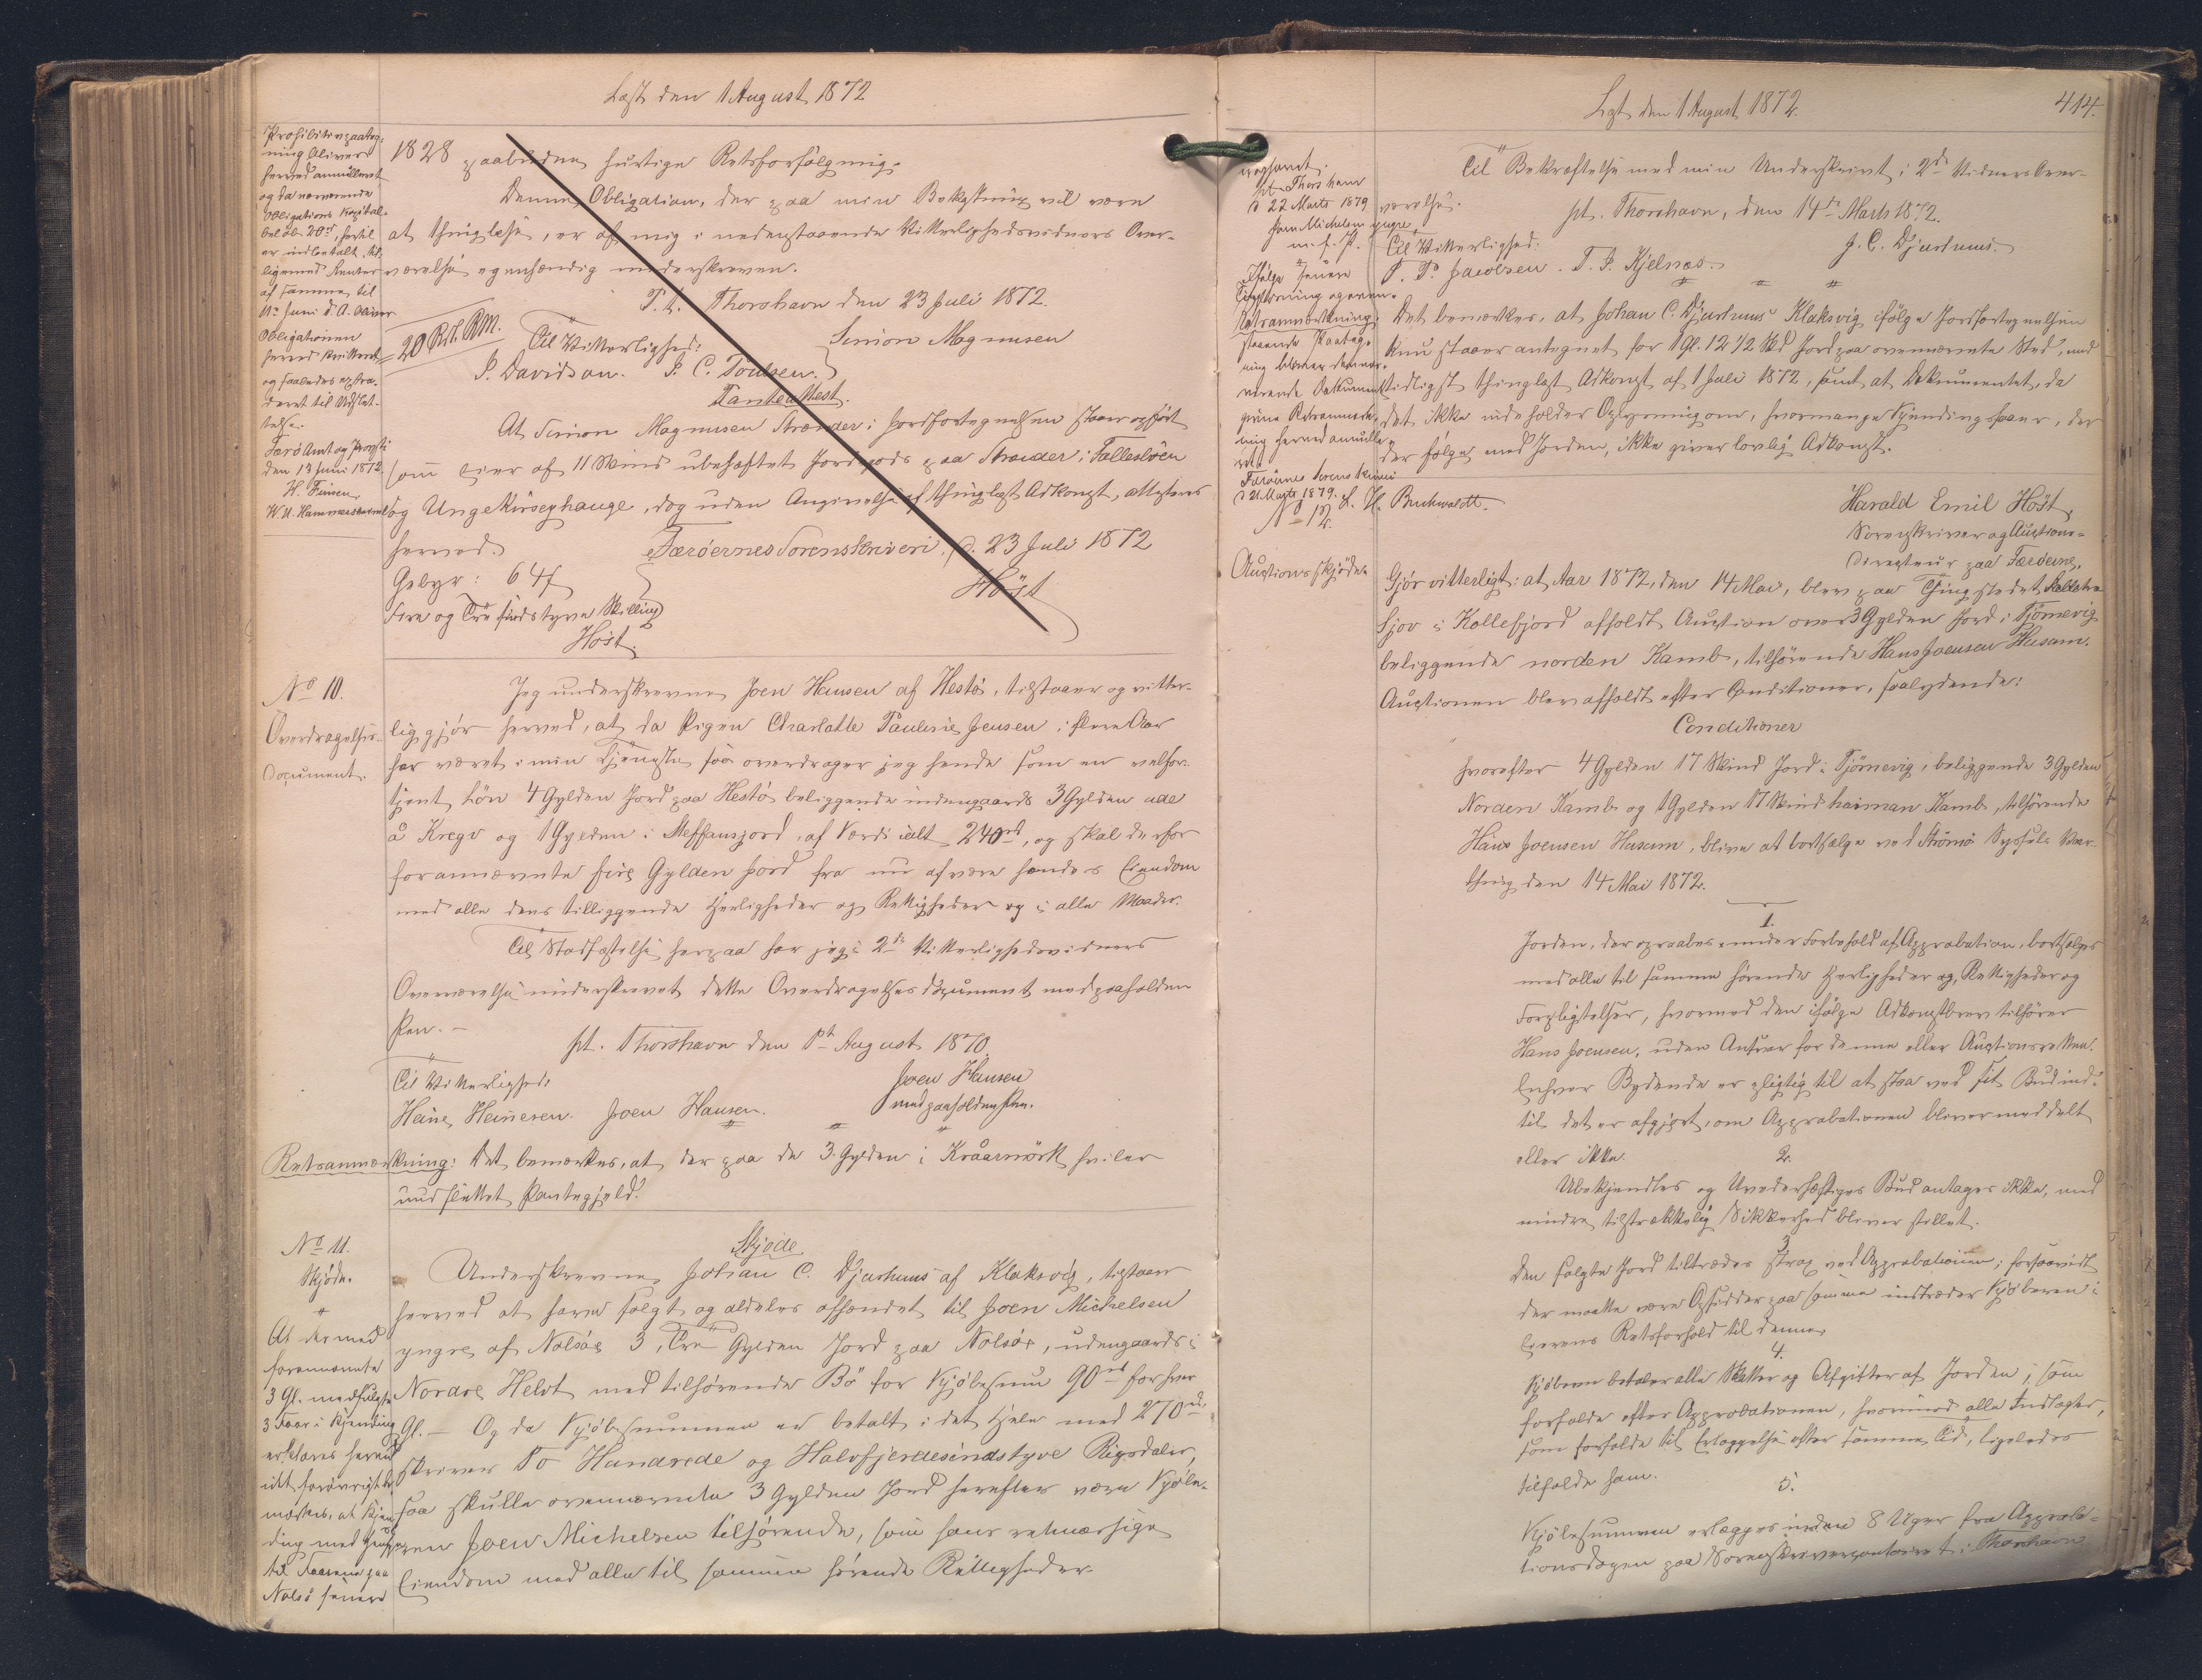 Læst den 1 August 1872
Prohibitivpaateg-
ning bliver
herved annulleret
og da nærværende
Obligations Kapital-
beløb 20 rd, hertil
er indbetalt, til-
ligemed Renter
af samme til
11te Juni d. A. bliver
Obligationen
herved kvitteret
og saaledes extra-
deret til Udslet-
telse.
Færö Amt og Provsti
den 13 Juni 1872
H. Finsen
W. U. Hammershaimb
1828 paabudne hurtige Retsforfølgning.
Denne Obligation, der paa min Bekostning vil være
at thinglæse, er af mig i nedenstaaende Vitterlighedsvidners Over-
værelse egenhændig underskreven.
P. t. Thorshavn den 23 Juli 1872.
20 Rd. RM. Til Vitterlighed: Simion Magnusen
P. Davidson. P. C. Poulsen.
Panteattest.
At Simion Magnusen Strænder i Jordfortegnelsen staaer opført
som Eier af 11 Skind ubehæftet Jordgods paa Strænder i Falleslöen
og Ungekirseyhauge, dog uden Angivelse af thinglæst Adkomst, attesteres
herved.
Færöernes Sorenskriveri, d. 23 Juli 1872
Gebyr: 64 ß Höst
Fire og Tre sindstyve Skilling
Höst.
No 10.
Overdragelses-
document.
Jeg underskrevne Joen Hansen af Hestö, tilstaaer og vitter-
liggjør herved, at da Pigen Charlotte Pauline Jensen i flere Aar
har været i min Tjeneste saa overdrager jeg hende som en velfor-
tjent Løn 4 Gylden Jord paa Hestö beliggende indengaards 3 Gylden ude
å Kregv og 1 Gylden i Steffansjord, af Værdi ialt 240 rd, og skal derfor
forannævnte fire Gylden Jord fra nu af være hendes Eiendom
med alle dens tilliggende Herligheder og Rettigheder og i alle Maader.
Til Stadfæstelse herpaa har jeg i 2de Vitterlighedsvidners
Overværelse underskrevet dette Overdragelsesdocument med paaholden
Pen. —
pt. Thorshavn den 1ste August 1870
Til Vitterlighed: Joen Hansen
Heine Heinesen. Joen Hansen. med paaholden Pen.
Retsanmærkning: Det bemærkes, at der paa de 3 Gylden i Kråarmörk hviler
uudslettet Pantegjeld.
No 11.
Skjøde.
At der med
forannævnte
3 Gl. medfølger
3 Faar i Kjending
erklæres herved
idet forøvrigt be-
mærkes, at Kjen-
ding med Hensyn
til Faarene paa
Nolsö henerd
Skjøde
Underskrevne Johan C. Djurhuus af Klaksvig, tilstaaer
herved at have solgt og aldeles afhændet til Joen Michelsen
yngre af Nolsöe 3, Tre Gylden Jord paa Nolsöe, udengaards i
Nordre Helvt med tilhørende Bö for Kjøbesum 90 rd for hver
Gl. — Og da Kjøbesummen er betalt i det Hele med 270 rd,
skriver To Hundrede og Halvfjerdesindstyve Rigsdaler,
saa skulle ovennævnte 3 Gylden Jord herefter være Kjøbe-
ren Joen Michelsen tilhørende, som hans retmæssige
Eiendom med alle til samme hørende Rettigheder
Læst den 1 August 1872. 414.
pt. Thorshavn
d 22 Marts 1879
Joen Michelsen yngre
m. f. P.
Ifølge senere
Oplysning og oven-
staaende Paateg-
ning bliver denne
Retsanmærk-
ning herved annulle-
ret
Færöernes Sorenskriveri
d 21 Marts 1879. L. H. Buchwaldt.
No 12.
Auctionsskjøde
Til Bekræftelse med min Underskrivt i 2de Vidners Over-
værelse.
pt. Thorshavn, den 14de Marts 1872.
Til Vitterlighed: J. C. Djurhuus.
P. P. Jacobsen. T. P. Kjelnæs.
Det bemærkes, at Johan C. Djurhuus Klaksvig ifølge Jordfortegnelsen
kun staaer antegnet for 1 Gl. 12 1/2 Skd Jord paa ovennævnte Sted, med
tidligst thinglæst Adkomst af 1 Juli 1872, samt at Dokumentet, da
det ikke indeholder Oplysning om, hvormange Kjendingsfaar, der
der følge med Jorden, ikke giver lovlig Adkomst.
Harald Emil Höst,
Sorenskriver og Auctions-
directeur paa Færöerne,
Gjör vitterligt: at Aar 1872, den 14 Mai, blev paa Thingstedet
i Kollefjord afholdt Auction over 3 Gylden Jord i Tjörnevig
beliggende norden Kambs, tilhørende Hans Joensen Husam.
Auctionen blev afholdt efter Conditioner, saalydende:
Conditioner
hvorefter 4 Gylden 17 Skind Jord i Tjörnevig, beliggende 3 Gylden
Norden Kambs og 1 Gylden 17 Skind haiman Kambs, tilhørende
Hans Joensen Husam, blive at bortsælge ved Strömö Syssels Vaar-
thing den 14 Mai 1872.
1.
Jorden, der opraabes under Forbehold af Approbation, bortsælges
med alle til samme hørende Herligheder og Rettigheder og
Forpligtelser, hvormed den ifølge Adkomstbrev tilhører
Hans Joensen, uden Ansvar for denne eller Auctionsretten.
Enhver Bydende er pligtig til at staa ved sit Bud ind-
til det er afgjort, om Approbationen bliver meddelt
eller ikke.
2.
Ubekjendtes og Uvederhæftiges Bud antages ikke, med
mindre tilstrækkelig Sikkerhed bliver stillet.
3
Den solgte Jord tiltrædes strax ved Approbationen; forsaavidt
der maatte være Opsidder paa samme indtræder Kjøberen i
Eierens Retsforhold til denne
4.
Kjøberen betaler alle Skatter og Afgifter af Jorden, som
forfalde efter Approbationen, hvorimod alle Indtægter,
som forfalde til Erlæggelse efter samme Tid, ligeledes
tilfalde ham.
5.
Kjøbesummen erlægges inden 8 Uger fra Approba-
tionsdagen paa Sorenskrivercontoiret i Thorshavn